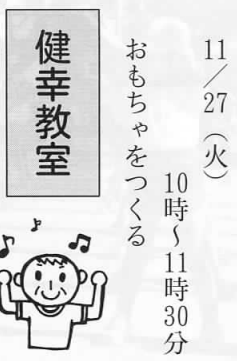 11／27（火）
10時～11時30分
おもちゃをつくる
健幸教室